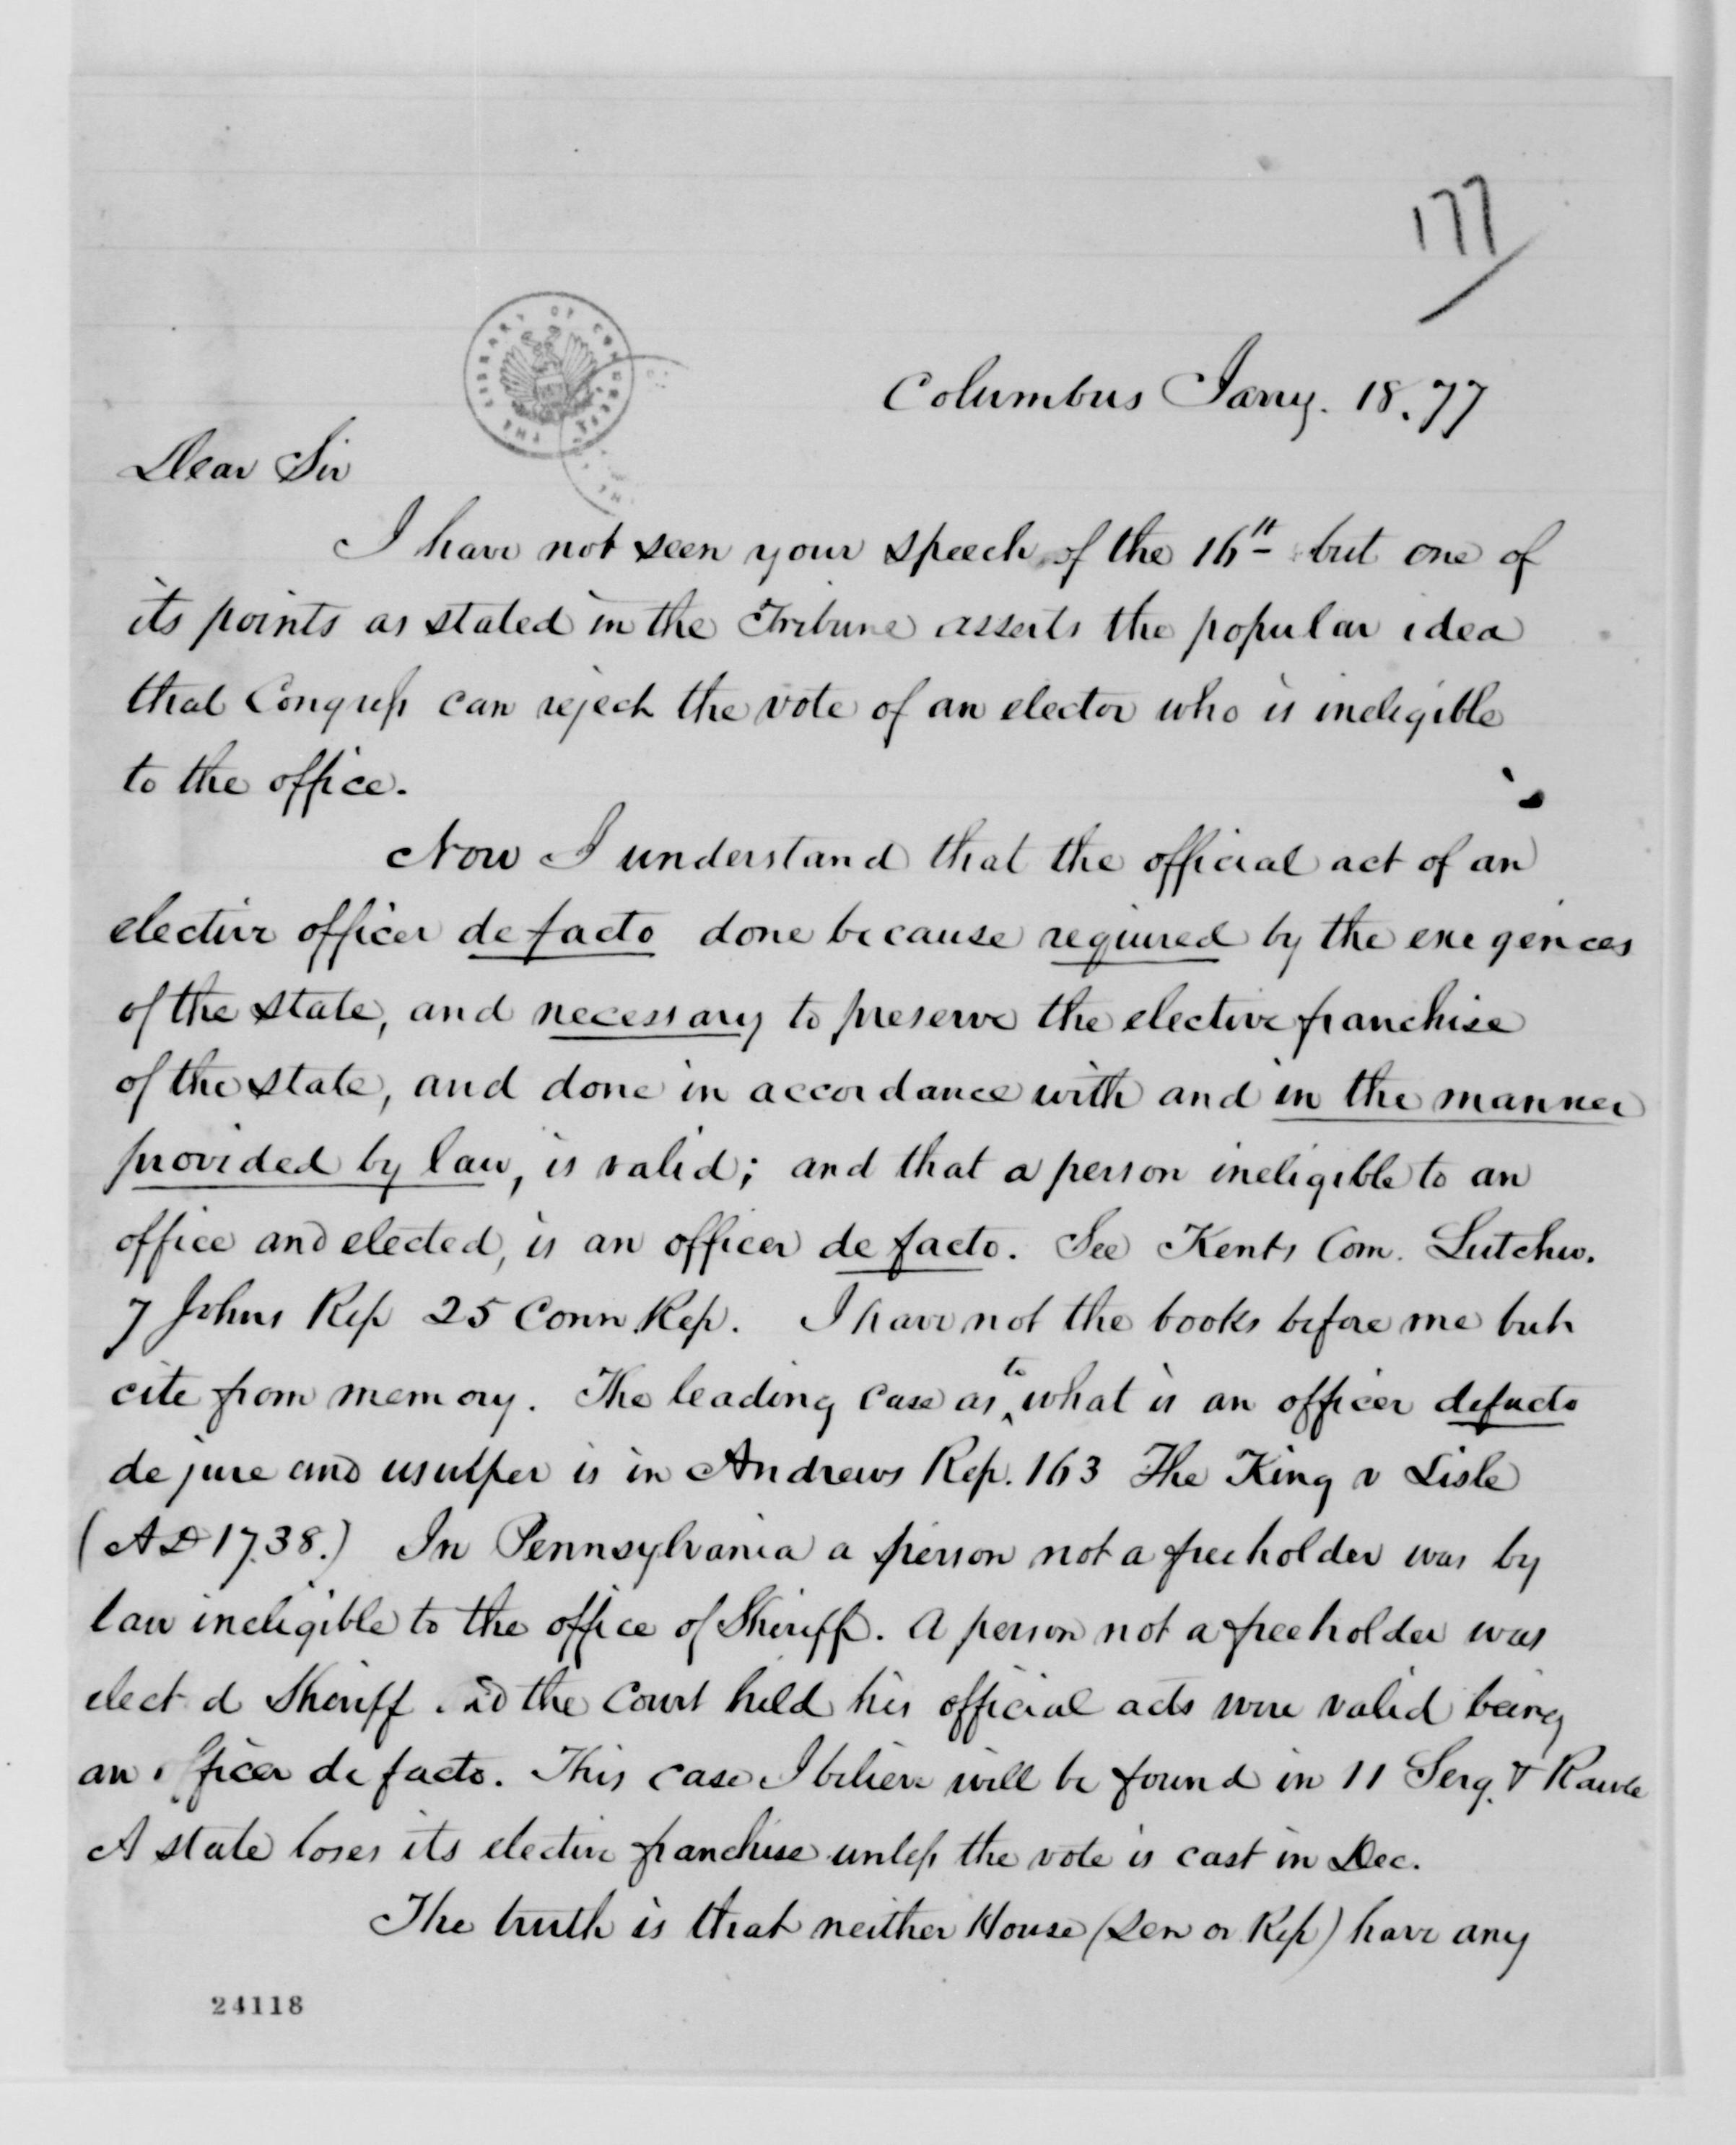 177
THE LIBRARY OF CONGRESS
Columbus Jany. 18. 77
Dear Sir
I have not seen your speech of the 16th but one of
its points as stated in the Tribune asserts the popular idea
that Congress can reject the vote of an elector who is ineligible
to the office.
Now I understand that the official act of an
elective officer de facto done because required by the exegences
of the state, and necessary to preserve the elective franchise
of the state, and done in accordance with and in the manner
provided by law, is valid; and that a person ineligible to an
office and elected, is an officer de facto. See Kents Com. Lutchw.
7 Johns Rep 25 Conn Rep. I have not the books before me but
cite from memory. The leading case as to what is an officer defacto
de jure and usulper is in Andrews Rep. 163 The King v Lisle
(AD 1738.) In Pennsylvania a person not a freeholder was by
law ineligible to the office of Sheriff. A person not a freeholder was
elect d Sheriff the Court held his official acts were valid being
an fficer de facto. This case I believe will be found in 11 Serg. & Rawle
A state loses its elective franchise unless the vote is cast in Dec.
The truth is that neither House (Sen or Rep) have any
24118